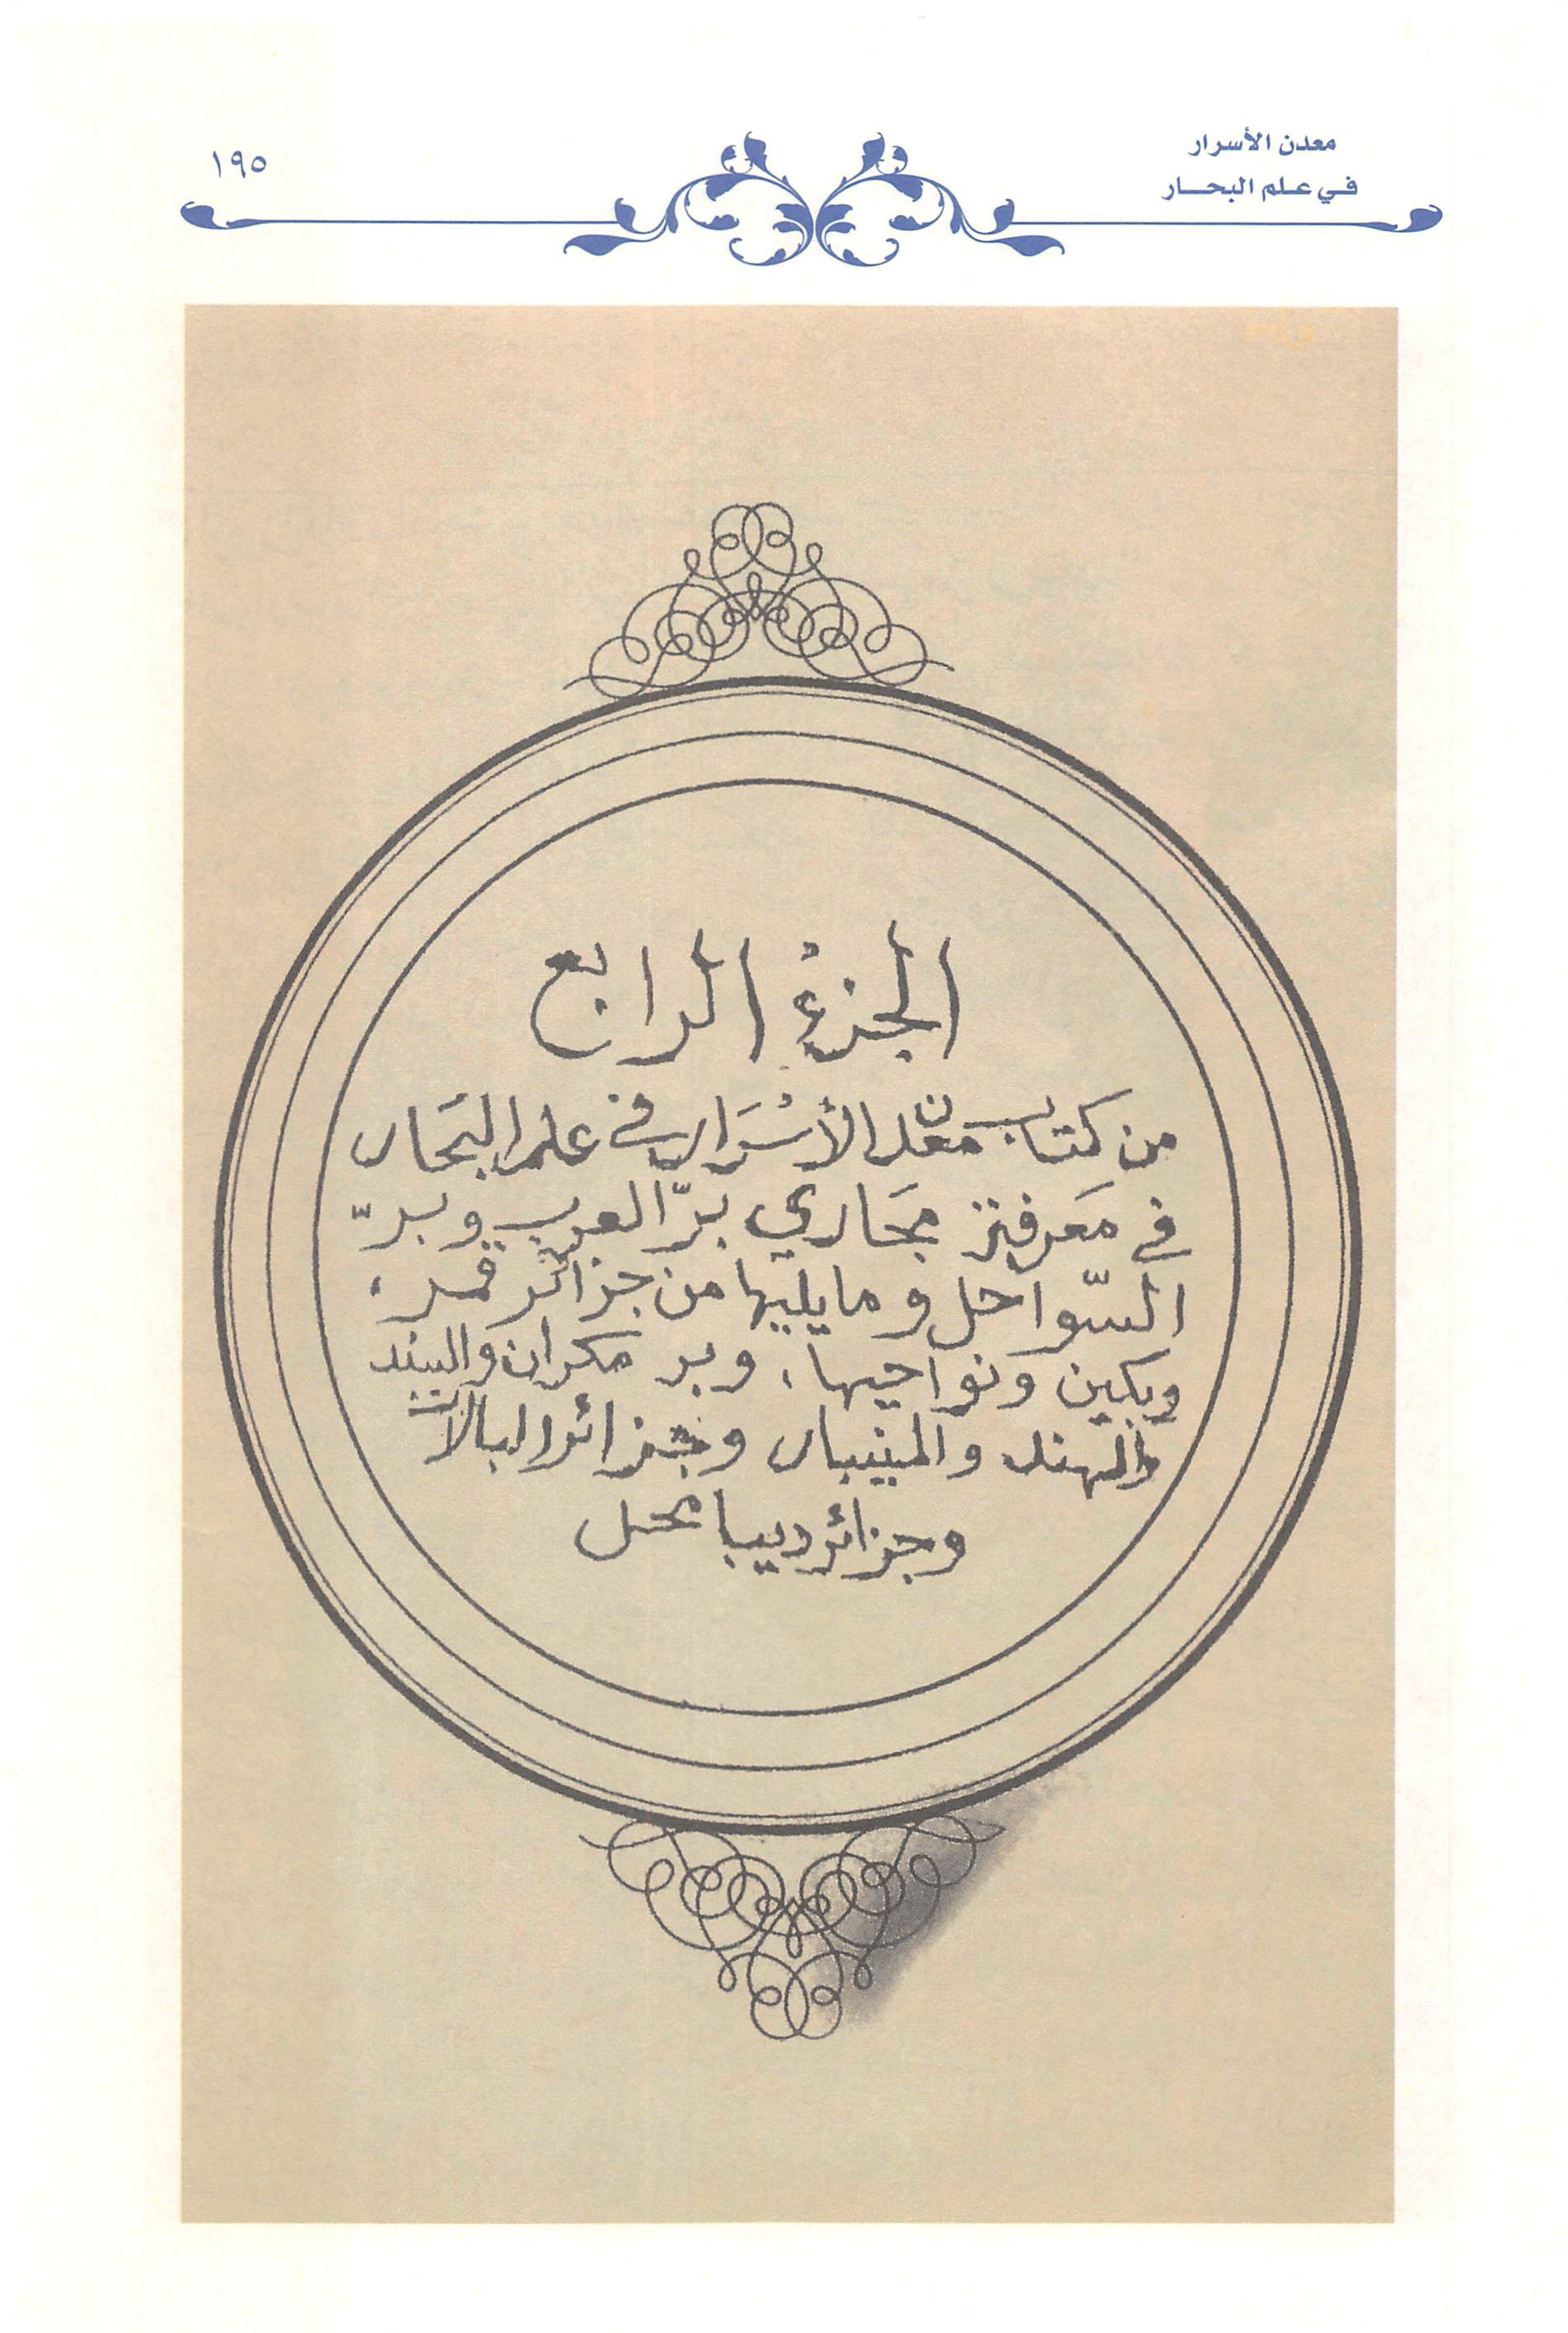 معدن الأسرار
في علم البحار
١٩٥
الجزءُ الرابع
من كتاب معدن الأسْرَار في علم البحَار
في مَعرفة مجَاري برّ العرب وبرّ
السّواحل وما يليها من جزائر قمر،
وبكين ونواحيها، وبر مكران والسند
والهند والمنيبار وجزائر البالات
وجزائر ديبا محل